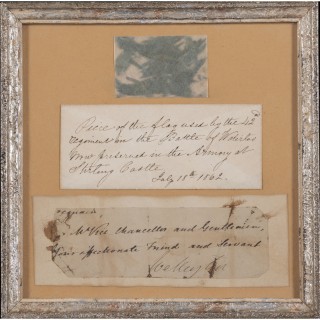 Piece of the flag used by the 42
regiment in the Battle of Waterloo
now preserved in the Armory at
Stirling Castle
July 18th 1862.
Mr Vice Chancellor and Gentlemen,
Your affectionate Friend and Servant